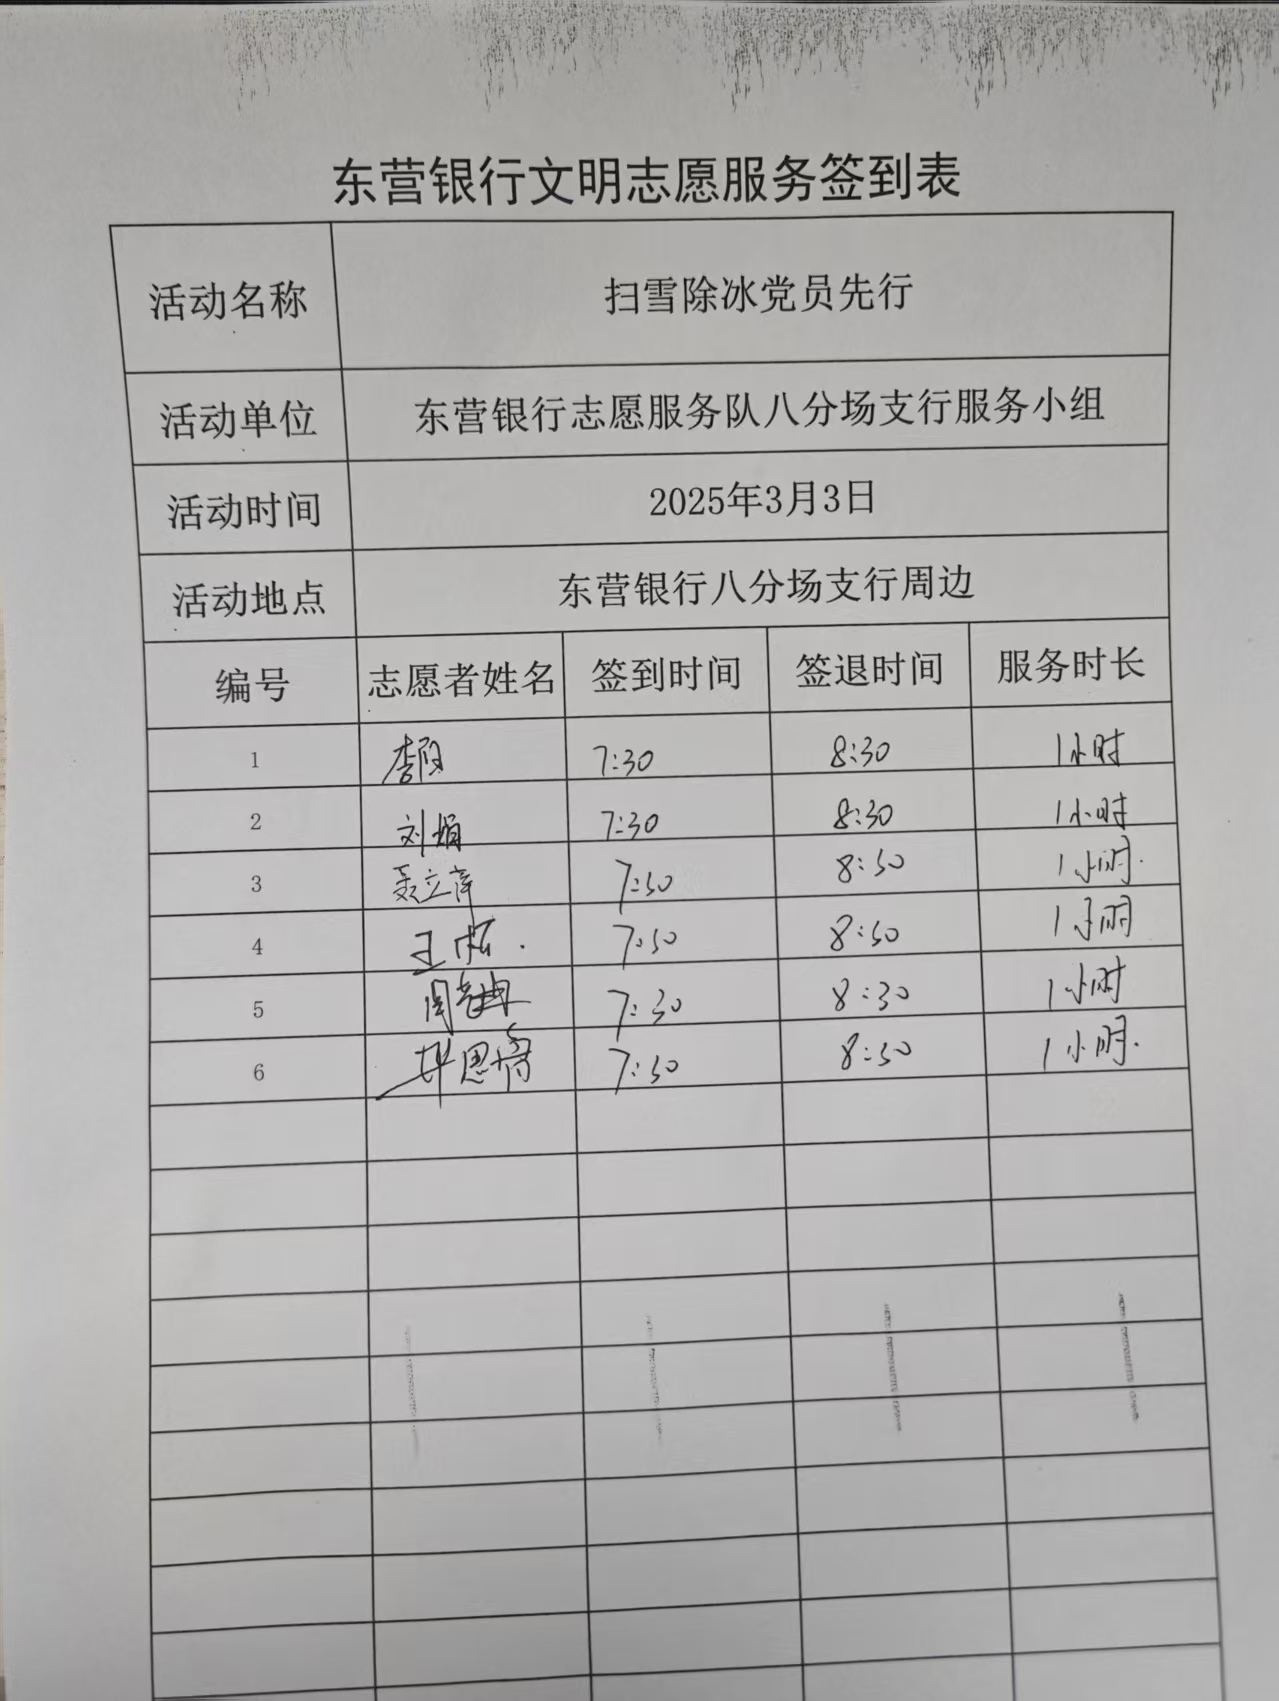 东营银行文明志愿服务签到表
活动名称 扫雪除冰党员先行
活动单位 东营银行志愿服务队八分场支行服务小组
活动时间 2025年3月3日
活动地点 东营银行八分场支行周边
编号 志愿者姓名 签到时间 签退时间 服务时长
1 7:30 8:30 1小时
2 刘娟 7:30 8:30 1小时
3 聂立萍 7:30 8:30 1小时
4 王 7:30 8:30 1小时
5 周 7:30 8:30 1小时
6 毕思 7:30 8:30 1小时